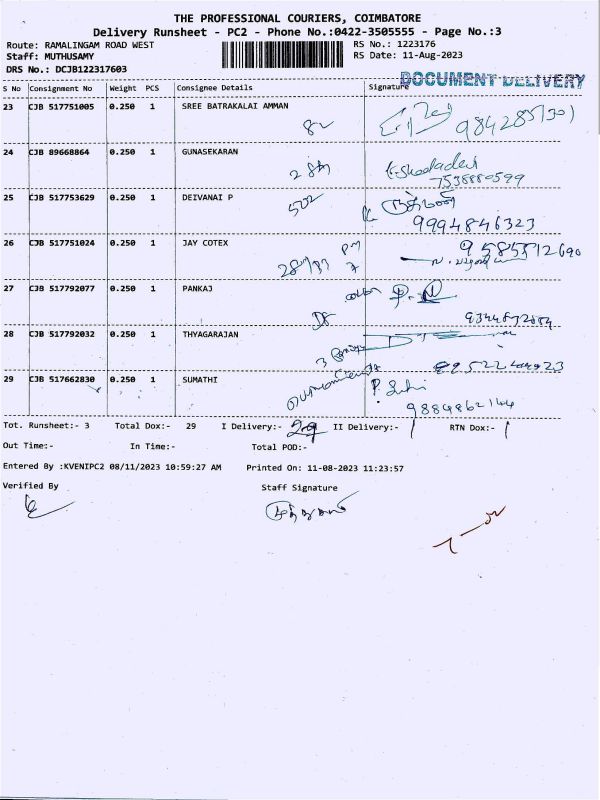 THE PROFESSIONAL COURIERS, COIMBATORE
Delivery Runsheet - PC2 - Phone No.:0422-3505555 - Page No.:3
Route: RAMALINGAM ROAD WEST
RS No.: 1223176
Staff: MUTHUSAMY
RS Date: 11-Aug-2023
DRS No.: DCJB122317603
DOCUMENT DELIVERY
S No Consignment No Weight PCS Consignee Details Signature
23 CJB 517751005 0.250 1 SREE BATRAKALAI AMMAN
82
24 CJB 89668864 0.250 1 GUNASEKARAN
7538880599
25 CJB 517753629 0.250 1 DEIVANAI P
502
9994846323
26 CJB 517751024 0.250 1 JAY COTEX
27 CJB 517792077 0.250 1 PANKAJ
28 CJB 517792032 0.250 1 THYAGARAJAN
29 CJB 517662830 0.250 1 SUMATHI
Tot. Runsheet:- 3 Total Dox:- 29 I Delivery:- 29 II Delivery:- RTN Dox:-
Out Time:- In Time:- Total POD:-
Entered By :KVENIPC2 08/11/2023 10:59:27 AM Printed On: 11-08-2023 11:23:57
Verified By Staff Signature